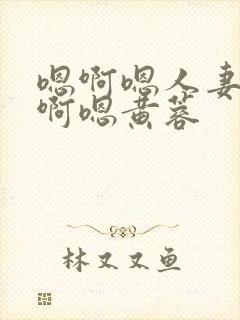 嗯啊嗯人妻
啊嗯黄蓉
林又又鱼